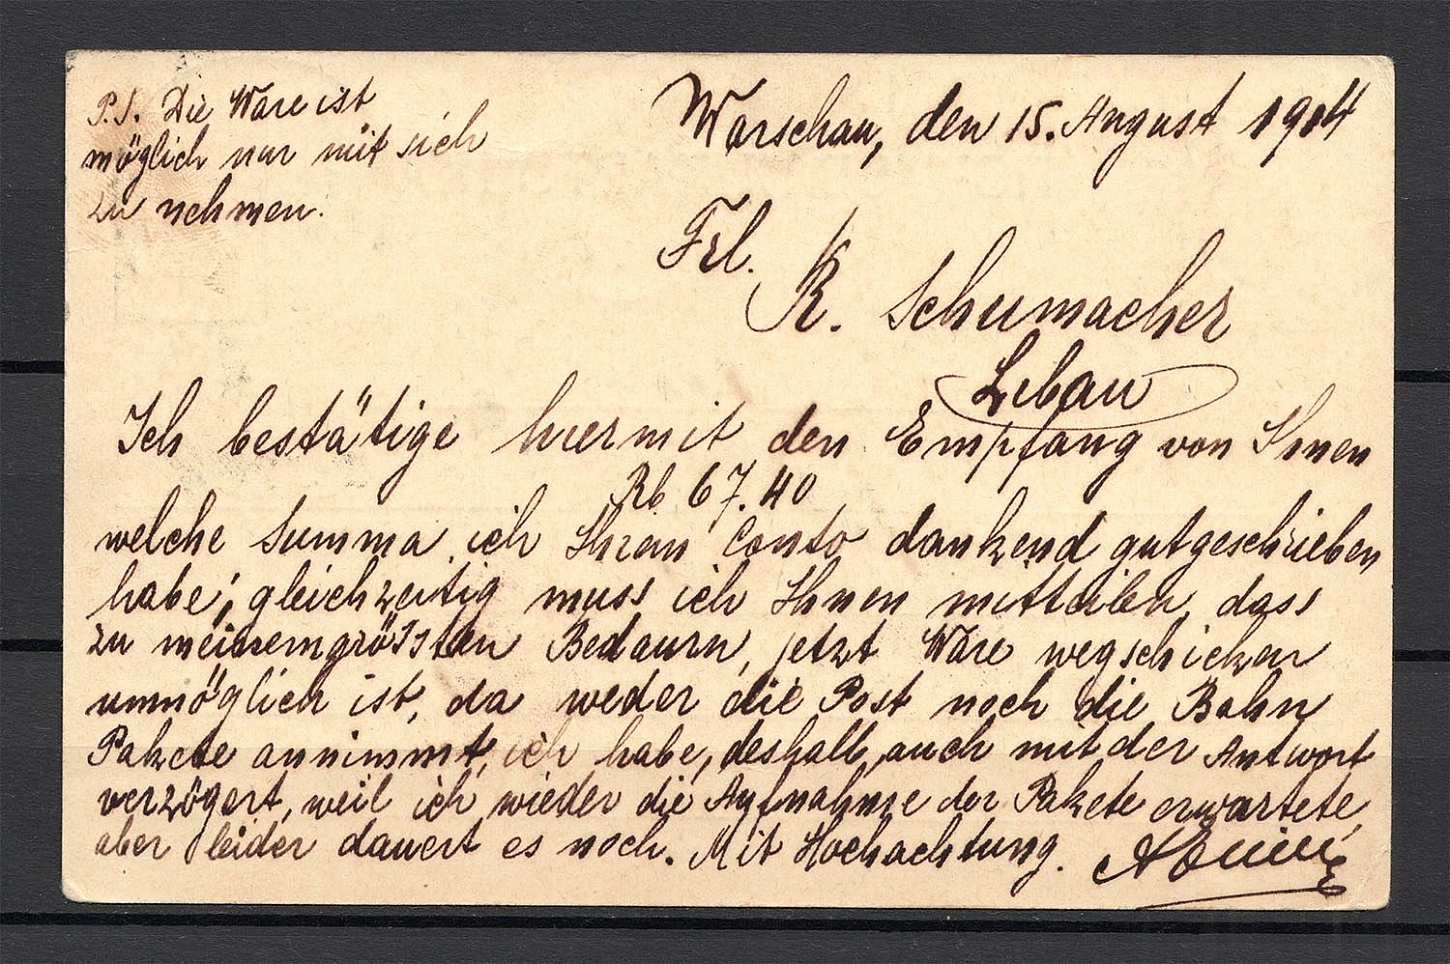 P.S. Die Ware ist
möglich nur mit sich
zu nehmen.
Warschau, den 15. August 1914
Frl.
K. Schumacher
Libau
Ich bestätige hiermit den Empfang von Ihnen
Rb 67.40
welche Summa ich Ihrem Conto dankend gutgeschrieben
habe; gleichzeitig muss ich Ihnen mitteilen, dass
zu meinem grössten Bedauern, jetzt Ware wegschicken
unmöglich ist, da weder die Post noch die Bahn
Pakete annimmt, ich habe, deshalb, auch mit der Antwort
verzögert, weil ich wieder die Aufnahme der Pakete erwartete,
aber leider dauert es noch. Mit Hochachtung.